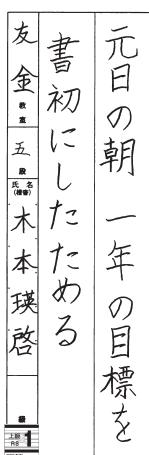 元日の朝 一年の目標を
書初にしたためる
友金 教室 五 段 氏名(楷書) 木本瑛啓 級
上級 RS 1